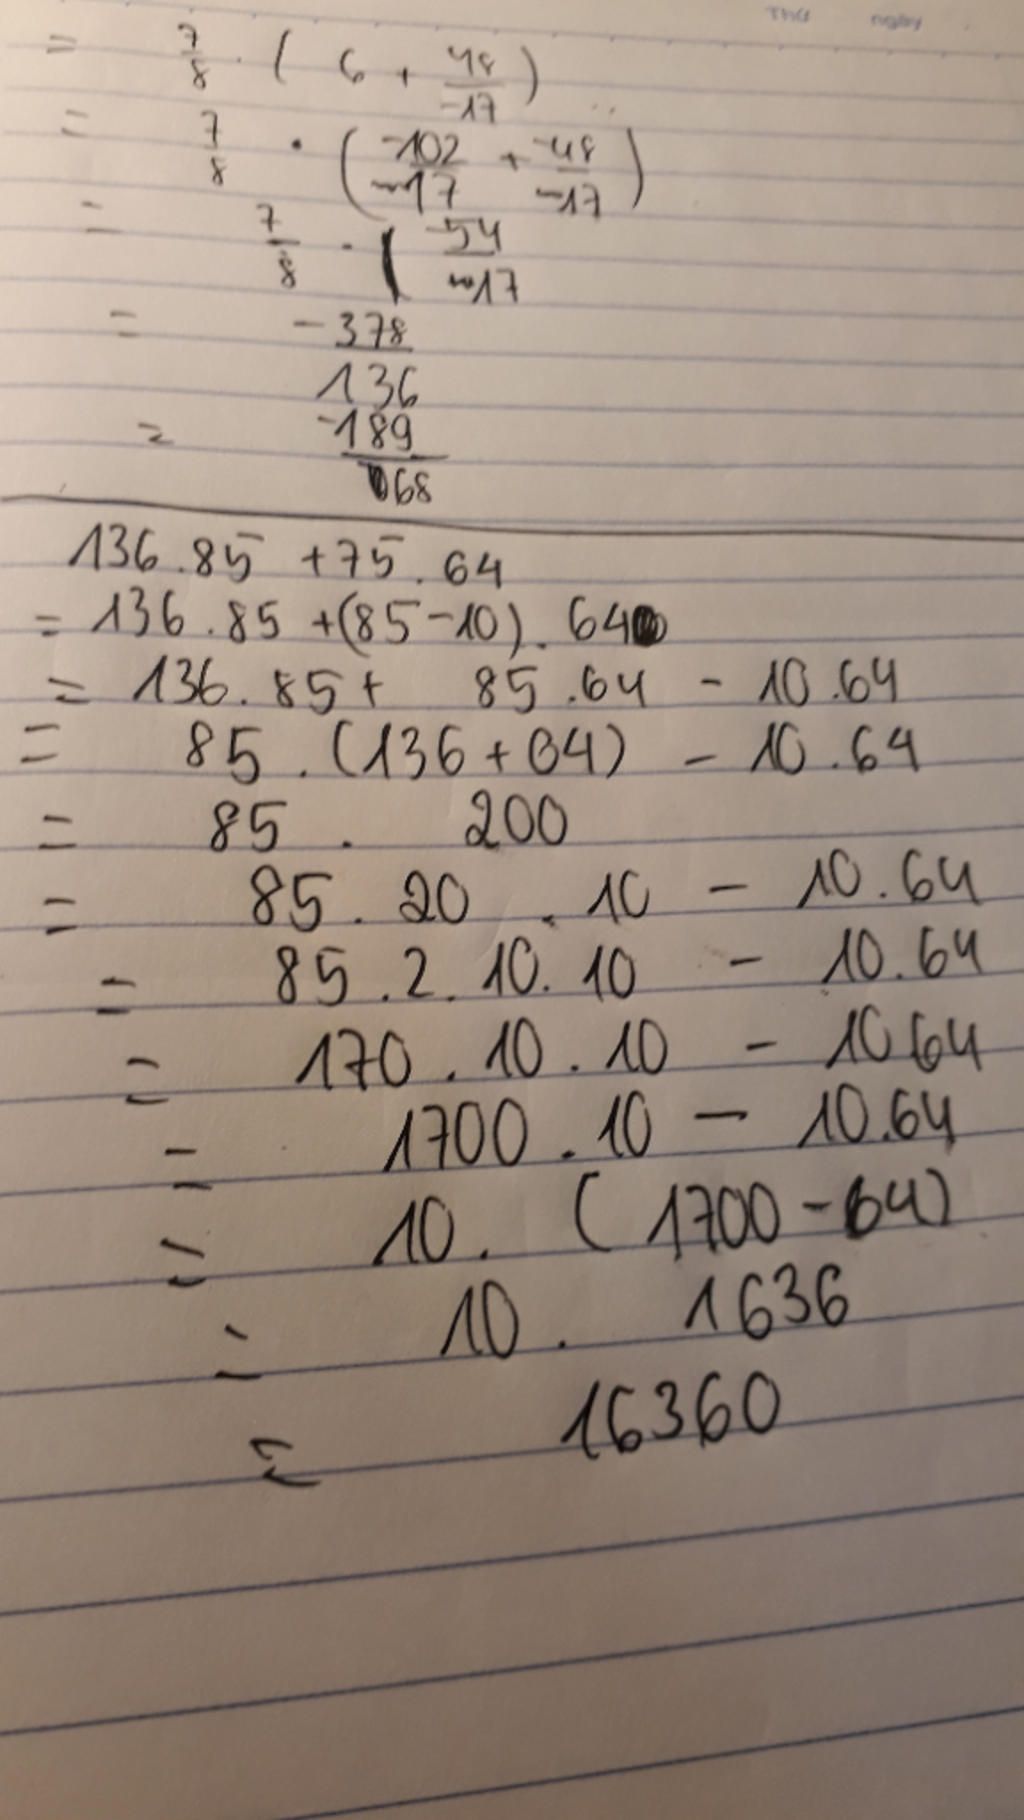 Thứ ngày
= 7/8 . ( 6 + 48/-17 )
= 7/8 . ( -102/-17 + 48/-17 )
= 7/8 . ( -54/-17
= -378/136
= -189/68
136.85 + 75.64
= 136.85 + (85-10). 64
= 136.85 + 85.64 - 10.64
= 85 . (136 + 64) - 10.64
= 85 . 200
= 85 . 20 . 10 - 10.64
= 85 . 2 . 10. 10 - 10.64
= 170 . 10 . 10 - 10 64
= 1700 . 10 - 10.64
= 10. ( 1700 - 64)
= 10 . 1636
= 16360